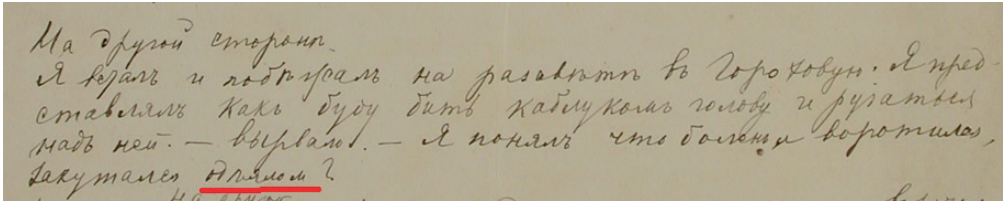 На другой сторонѣ.
Я всталъ и побѣжалъ на разсвѣтѣ въ Гороховую. Я пред-
ставлялъ какъ буду бить каблукомъ голову и ругаться
надъ ней. — вырвало. — Я понялъ что боленъ, воротился,
закутался одѣялом?